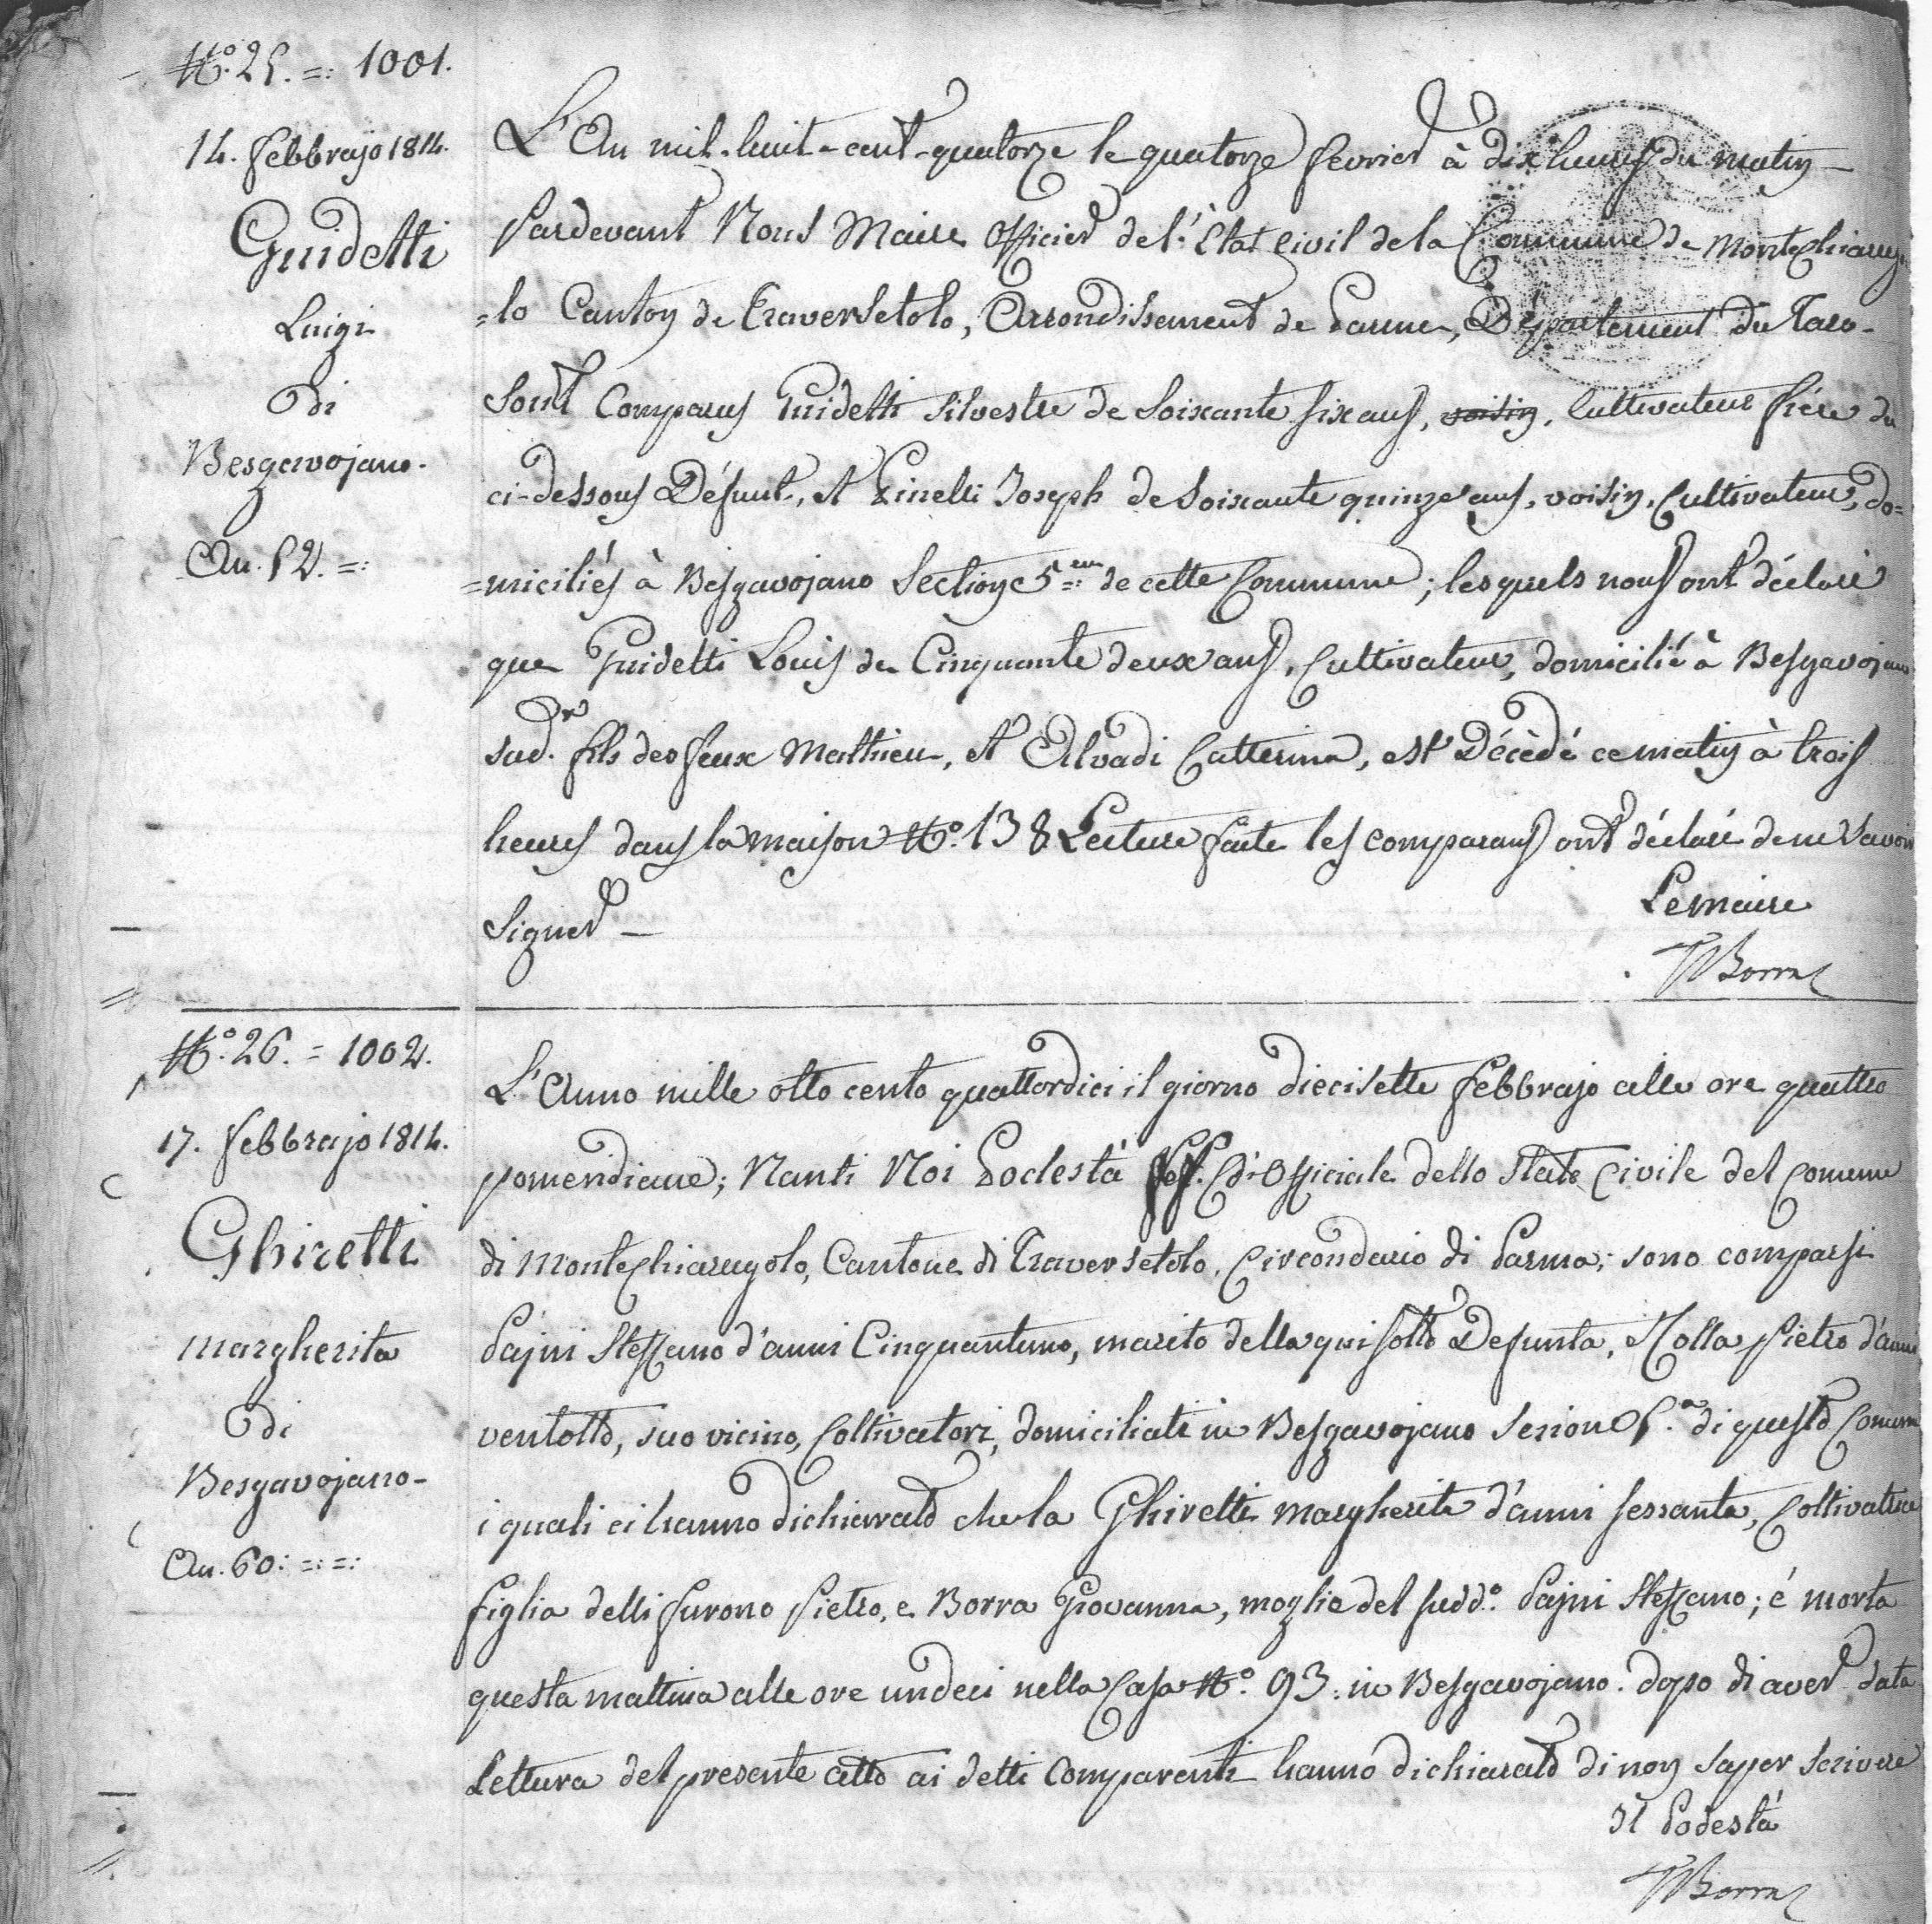 N.º 25. =: 1001.
14. Febbrajo 1814.
Guidetti
Luigi
di
Besgavojano.
An. 52. =:
L'An mil-huit-cent-quatorze le quatorze fevrier à dix heures du matin
Pardevant Nous Maire Officier de l'État Civil de la Commune de Montechiarugo
=lo Canton de Traversetolo, Arrondissement de Parme, Département du Taro
sont Comparus Guidetti Silvestre de Soixante six ans, voisin, Cultivateur frére du
ci-dessous Défunt, et Joseph de Soixante quinze ans, voisin, Cultivateur, do=
=miciliés à Besgavojano Section 5.em de cette Commune; lesquels nous ont déclaré
que Guidetti Louis de Cinquante deux ans, Cultivateur, domicilié à Besgavojano
sud.t fils des feux Mathieu, et Alvadi Catterina, est Décèdé ce matin à trois
heures dans la maison N.º 138 Lecture faite les comparans ont déclaré de ne Savoir
Signer
Le maire
Borra
N.º 26. = 1002.
17. Febbrajo 1814.
Ghiretti
Margherita
di
Besgavojano
An. 60: =: =:
L'Anno mille otto cento quattordici il giorno diecisette Febbrajo alle ore quattro
pomeridiane; Nanti Noi Podestà Officiale dello Stato Civile del Comune
di Montechiarugolo, Cantone di Traversetolo, Circondario di Parma; sono comparsi
Pajni Steffano d'anni Cinquantuno, marito della qui sotto Defunta, Molla Pietro d'anni
ventotto, suo vicino, Coltivatori, domiciliati in Besgavojano Sezione 5.a di questo Comune
i quali ci hanno dichiarato che la Ghiretti Margherita d'anni sessanta, Coltivatrice
figlia delli furono Pietro, e Borra Giovanna, moglie del sudd.º Pajni Steffano; é morta
questa mattina alle ore undeci nella Casa N.º 93: in Besgavojano. dopo di aver data
Lettura del presente atto ai detti Comparenti hanno dichiarato di non saper scrivere
Il Podestà
Borra